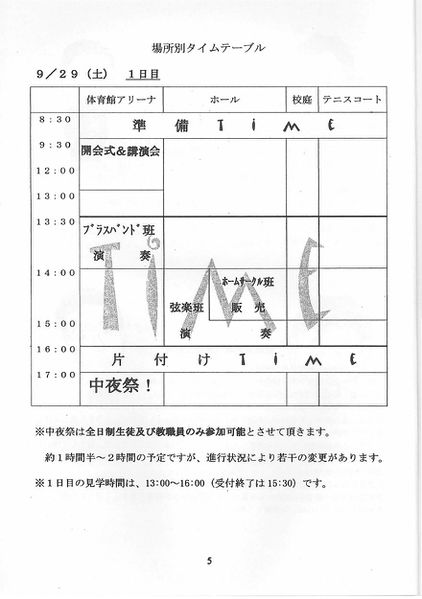 場所別タイムテーブル
9/29（土） 1日目
体育館アリーナ ホール 校庭 テニスコート
8:30
準備TiME
9:30
開会式&講演会
12:00
13:00
13:30
ﾌﾞﾗｽﾊﾞﾝﾄﾞ班
演奏
TiME
14:00
ﾎｰﾑｻｰｸﾙ班
弦楽班 販売
15:00
演奏
16:00
片付けTiME
17:00
中夜祭！
※中夜祭は全日制生徒及び教職員のみ参加可能とさせて頂きます。
約1時間半～2時間の予定ですが、進行状況により若干の変更があります。
※1日目の見学時間は、13:00～16:00（受付終了は15:30）です。
5